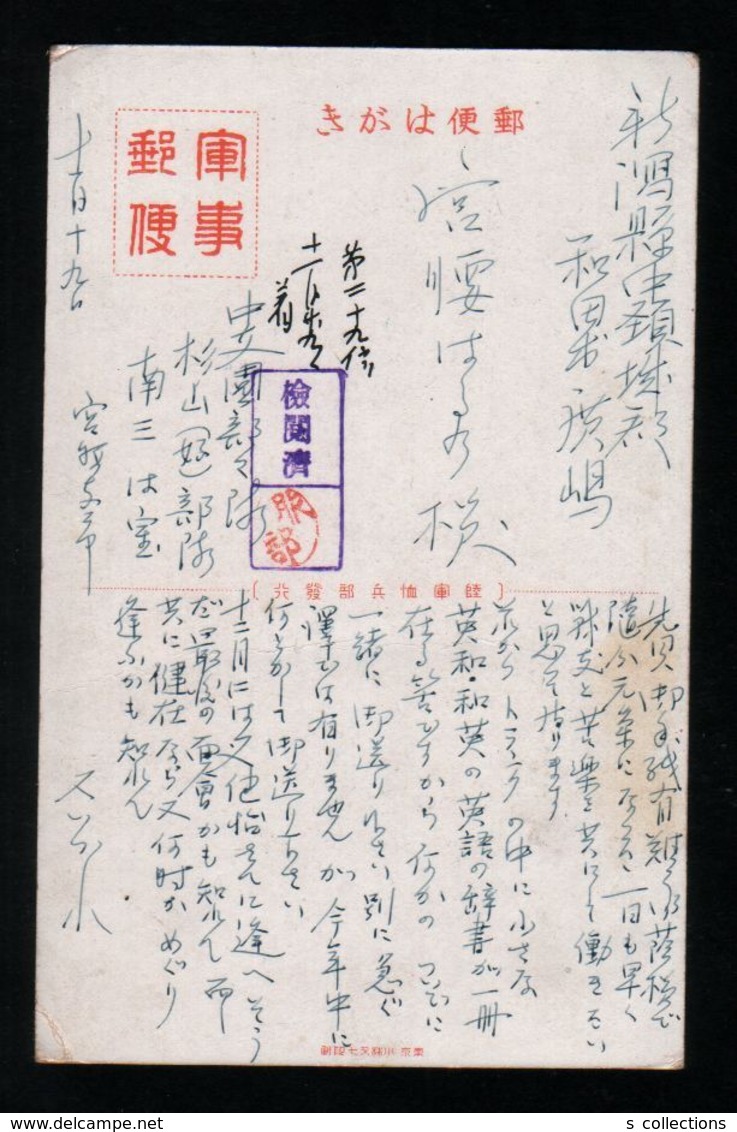 郵便はがき
軍事
郵便
新潟縣中頚城郡
和田村廣嶋
宮腰はるの様
第二十九信
着
檢閲濟
服部
中支
部隊
杉山(

)部隊
南三 は室
十一月十九日
〔陸軍恤兵部發行〕
先
御手紙有難う
御蔭様で
随分元氣になった 一日も早く
戦友と苦樂を共にして働きたい
と思って居ります
それから トランクの中に小さな
英和・和英の英語の辞書が一冊
在る筈ですから何かのついでに
一緒に御送り下さい 別に急ぐ
譯では有りませんが今年中に
何とかして御送り下さい
十二月には又
さんに逢へそう
だ 最后の面會かも知れん 而し
共に健在なら又何時かめぐり
逢ふかも知れん
東京
印刷
s collections